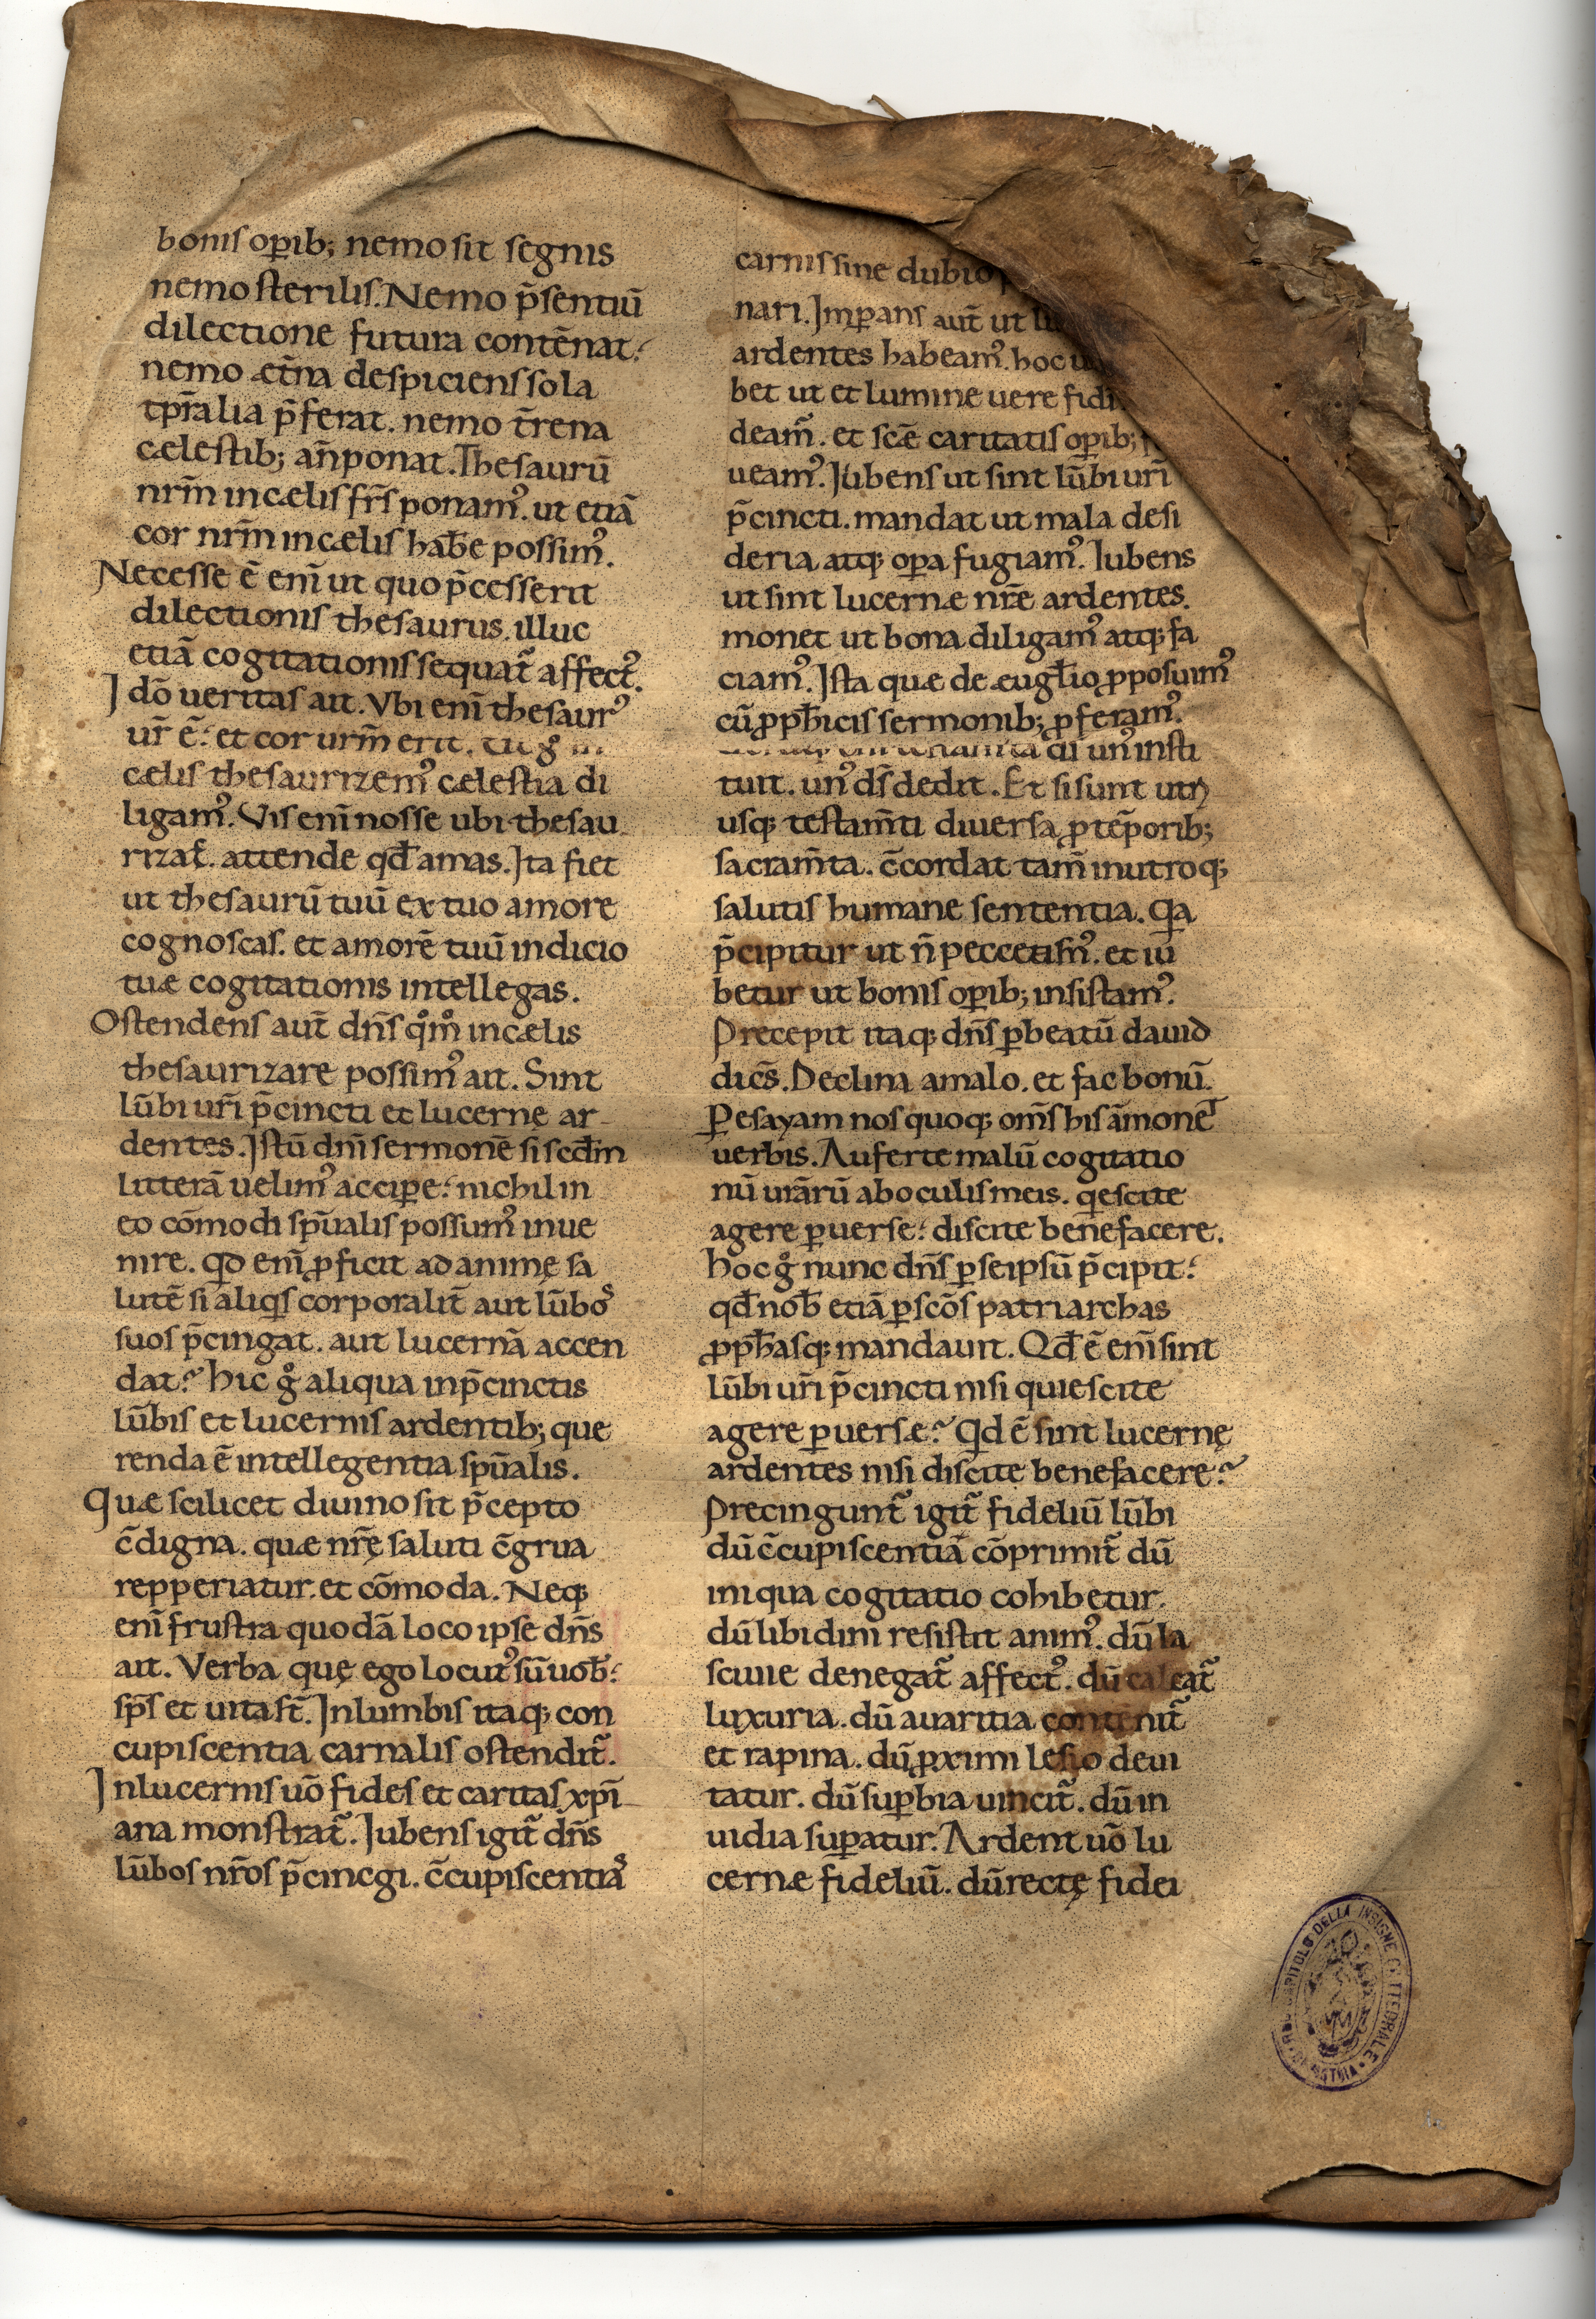 bonis op̄ib; nemo sit segnis
nemo sterilis. Nemo p̄sentiū
dilectione futura contēnat.
nemo æt̄na despiciens sola
tp̄ralia p̄ferat. nemo t̄rena
cælestib; an̄ponat. Thesaurū
nrm̄ in cælis frs̄ ponam᾿. ut etiā
cor nrm̄ in cælis hab̄e possim᾿.
Necesse ē eni᷑ ut quo p̄cesserit
dilectionis thesaurus. illuc
etiā cogitationis sequat᷑ affect᾿.
Idō ueritas ait. Vbi eni᷑ thesaur᾿
ur̄ ē. et cor urm̄ erit.
cælis thesaurizem᾿ cælestia di
ligam᾿. Vis eni᷑ nosse ubi thesau
rizas̄. attende qđ amas. Ita fiet
ut thesaurū tuū ex tuo amore
cognoscas. et amorē tuū indicio
tuæ cogitationis intellegas.
Ostendens aut̄ dn̄s qm̊ in cælis
thesaurizare possim᾿ ait. Sint
lūbi uri᷑ p̄cincti et lucernę ar
dentes. Istū dni᷑ sermonē si scđm
litterā uelim᾿ accip̄e. nichil in
eo cōmodi spūalis possum᾿ inue
nire. Qd eni᷑ ꝓficit ad animę sa
lutē si aliq̄s corporalit̄ aut lūbos
suos p̄cingat. aut lucernā accen
dat? hic g̊ aliqua in p̄cinctis
lūbis et lucernis ardentib; que
renda ē intellegentia spūalis.
Quæ scilicet diuino sit p̄cepto
c̄digna. quæ nrę̄ saluti c̄grua
repperiatur. et cōmoda. Neq;
eni᷑ frustra quodā loco ipse dn̄s
ait. Verba quę ego locut᾿ sū uob̄.
sp̄s et uita st̄. In lumbis itaq; con
cupiscentia carnalis ostendit᷑.
In lucernis uō fides et caritas xp̄i
ana monstrat᷑. Iubens igit᷑ dn̄s
lūbos nr̄os p̄cincgi. c̄cupiscentias
carnis sine dubio
nari. Imp̄ans aut̄ ut
ardentes habeam᾿. hoc
bet ut et lumine uere
deam᷑. et scē caritatis op̄ib;
ueam᾿. Iubens ut sint lūbi uri᷑
p̄cincti. mandat ut mala desi
deria atq; op̄a fugiam᾿. Iubens
ut sint lucernæ nrē ardentes.
monet ut bona diligam᾿ atq; fa
ciam᾿. Ista quæ de æuglio ꝓposuim᾿
cū ꝓpħicis sermonib; ꝓferam᾿.
un᾿ insti
tuit. un᾿ ds̄ dedit. Et si sunt utri
usq; testam̄ti diuersa ꝓ tēporib;
sacram̄ta. c̄cordat tam̄ in utroq;
salutis humane sententia. Qa
p̄cipitur ut n̄ peccetism᾿. et iu
betur ut bonis op̄ib; insistam᾿.
Precepit itaq; dn̄s p̱ beatū dauid
dicēs. Declina a malo. et fac bonū.
P̱ esayam nos quoq; oms̄ his āmonet
uerbis. Auferte malū cogitatio
nū urārū ab oculis meis. qescite
agere p̱uerse. discite benefacere.
hoc g̊ nunc dn̄s p̱ seipsū p̄cipit.
qđ nob̄ etiā p̱ scōs patriarchas
ꝓpħasq; mandauit. Qđ ē eni᷑ sint
lūbi uri᷑ p̄cincti nisi quiescite
agere p̱uersæ? Qđ ē sint lucernę
ardentes nisi discite benefacere?
Precingunt᷑ igit᷑ fideliū lūbi
dū c̄cupiscentiā cōprimit᷑ dū
iniqua cogitatio cohibetur.
dū libidini resistit anim᾿. dū la
sciuie denegat᷑ affect᾿. dū
luxuria. dū auaritia contenit᷑
et rapina. dū ꝓximi lesio deui
tatur. dū sup̱bia uincit᷑. dū in
uidia sup̱atur. Ardent uō lu
cernæ fideliū. dū rectę fidei